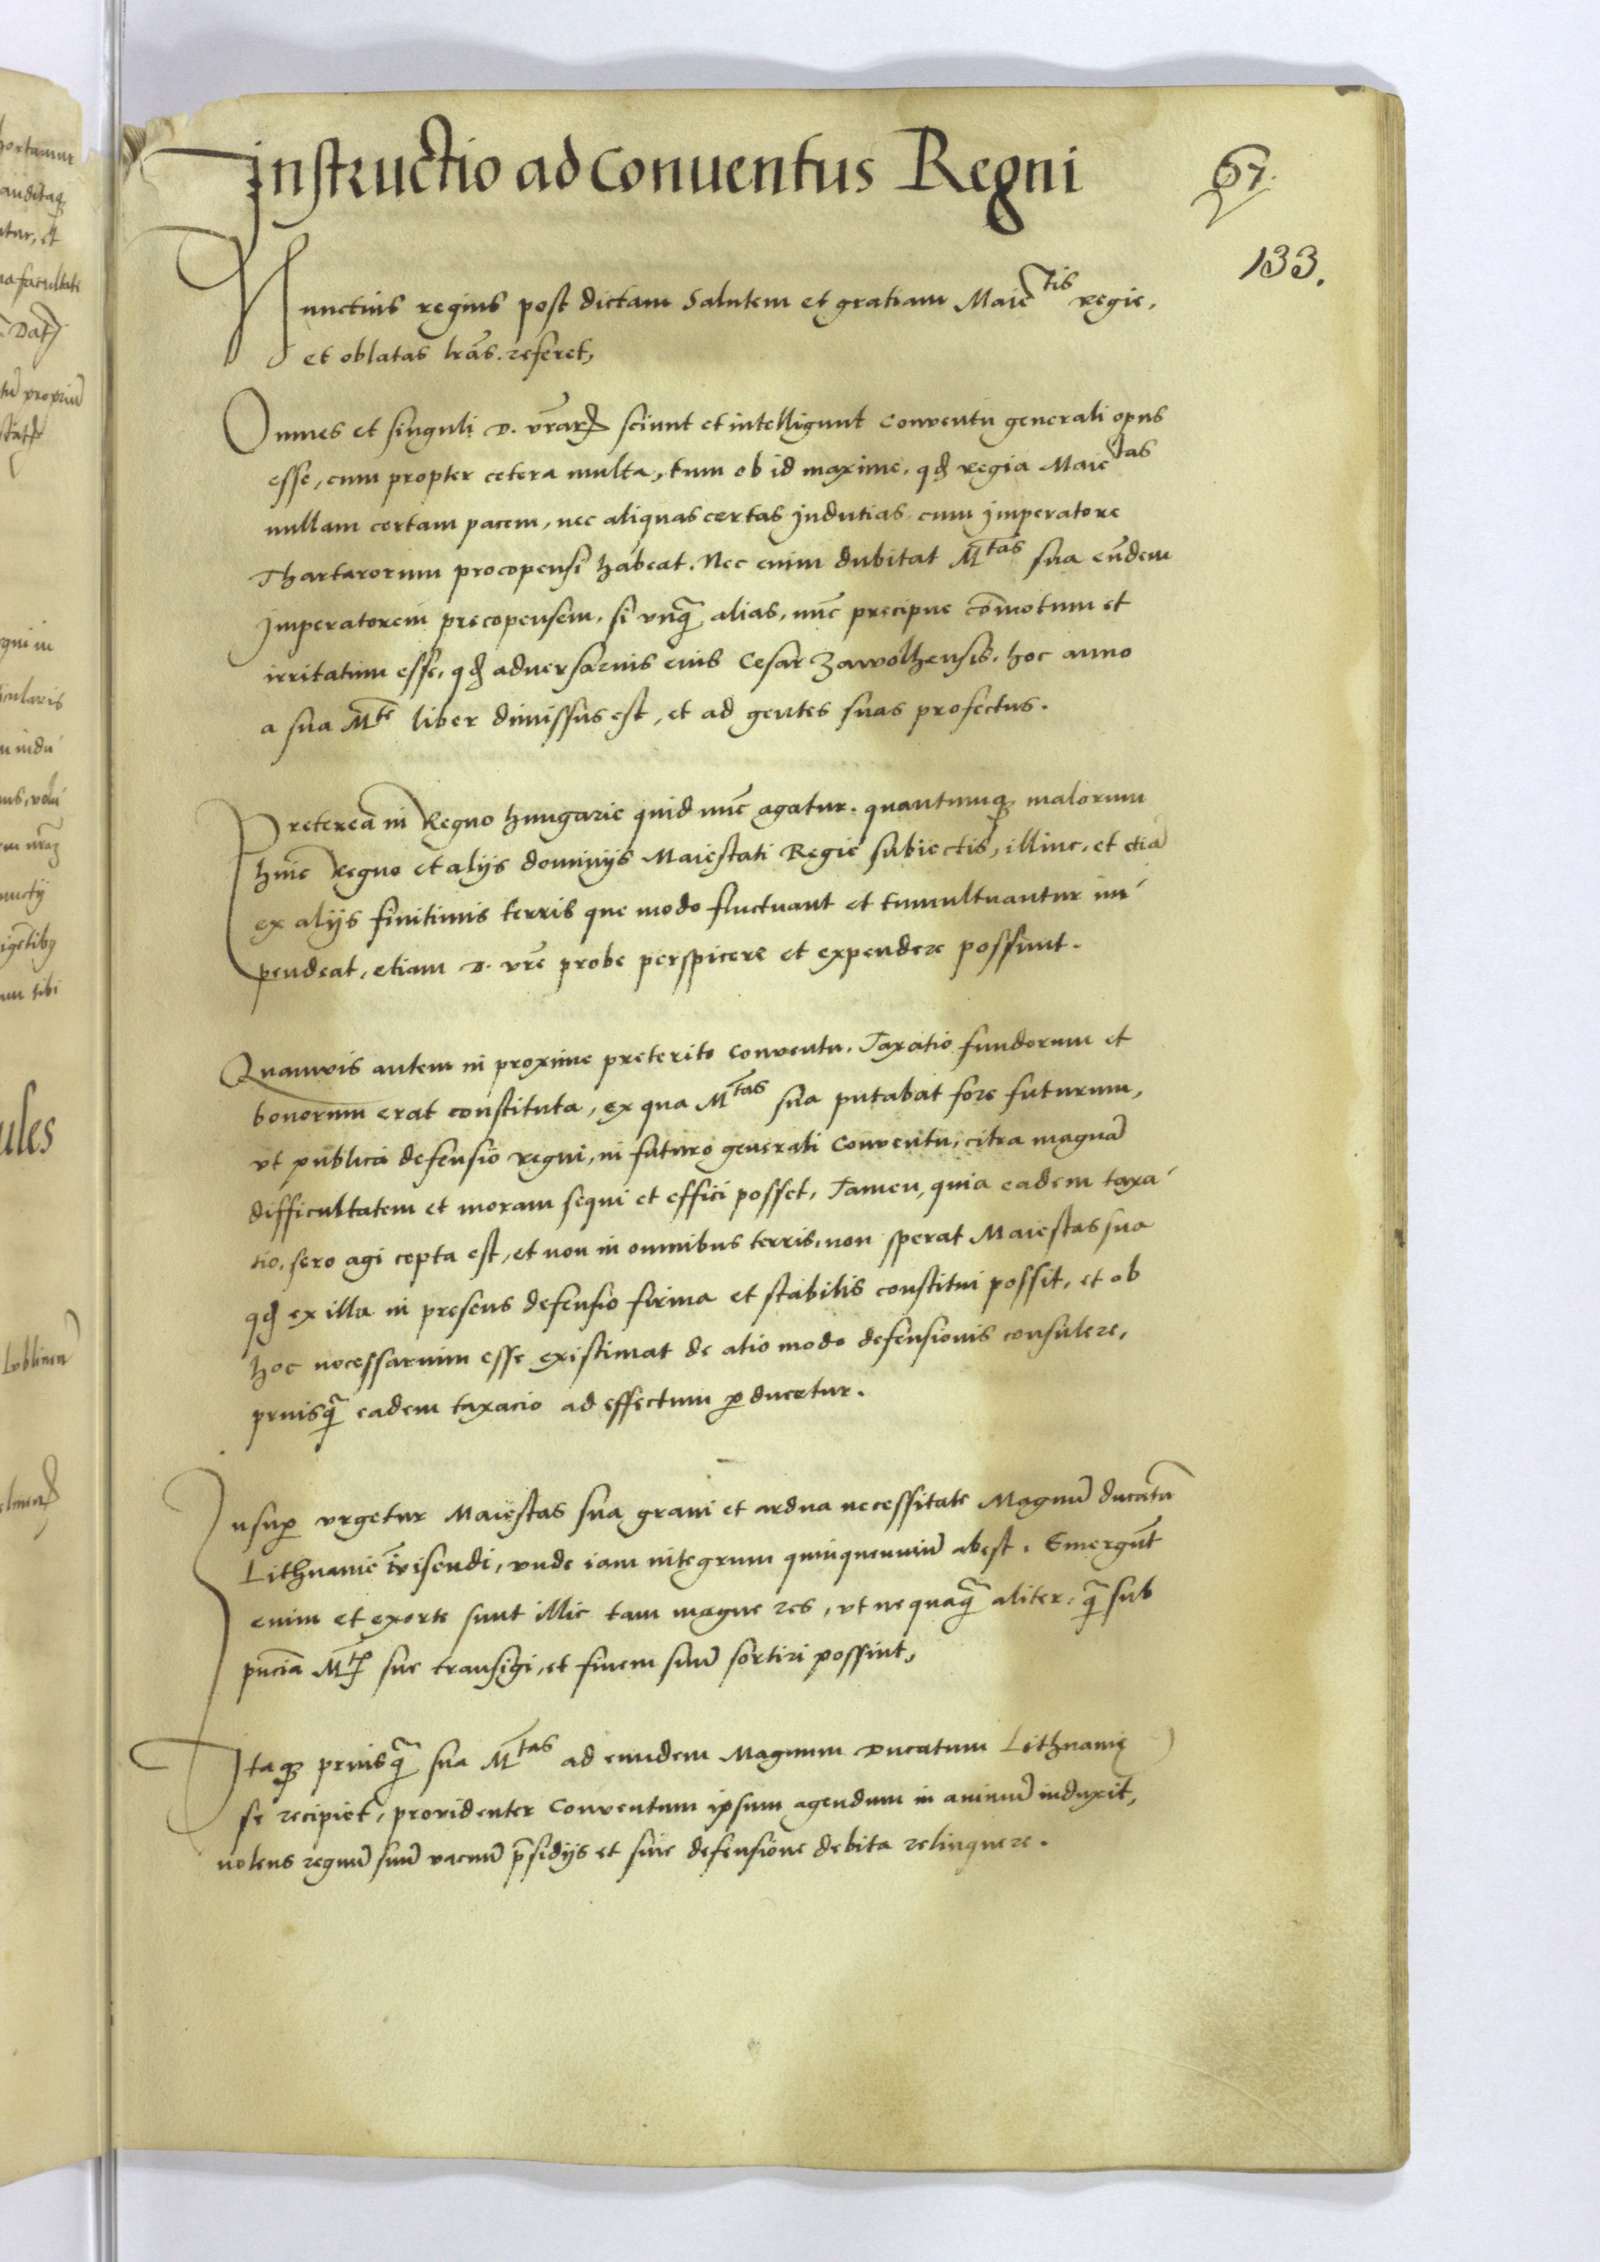 Instructio ad Conuentus Regni
67.
133.
Nunctius regius post dictam Salutem et gratiam Maie^tis regie,
et oblatas lr̄as. referet,
Omnes et singuli D. vr̄arꝝ sciunt et intelligunt Conventu generali opus
esse, cum propter cetera multa, tum ob id maxime, qđ regia Maie^tas
nullam certam pacem, nec aliquas certas Indutias cum Imperatore
Thartarorum procopensi habeat. Nec enim dubitat M^tas sua eūdem
Imperatorem precopensem, si vnq̄ alias, nūc precipue cōmotum et
irritatum esse, qđ adversarius eius Cesar Zawolhensis, hoc anno
a sua M^te liber dimissus est, et ad gentes suas profectus.
Preterea in Regno Hungarie quid nūc agatur. quantumqꝫ malorum
huic Regno et alijs dominijs Maiestati Regie subiectis, illinc, et etiā
ex alijs finitimis terris que modo fluctuant et tumultuantur im
pendeat, etiam D. vr̄e probe perspicere et expendere possunt.
Quamvis autem in proxime preterito Conventu. Taxatio fundorum et
bonorum erat constituta, ex qua M^tas sua putabat fore futurum,
vt publica defensio regni, in futuro generali Conventu, citra magnā
difficultatem et moram sequi et effici posset, Tamen, quia eadem taxa
tio, sero agi cepta est, et non in omnibus terris, non sperat Maiestas sua
qđ ex illa in presens defensio firma et stabilis constitui possit, et ob
hoc necessarium esse existimat de alio modo defensionis consulere,
priusq̄ eadem taxacio ad effectum ꝑducetur.
Insuꝑ vrgetur Maiestas sua gravi et ardua necessitate Magnū ducatū
Lithuanie īvisendi, vnde iam integrum quinquenniū abest. Emergūt
enim et exorte sunt illic tam magne res, vt nequaq̄ aliter, q̄ sub
pn̄cia M^tꝭ sue transigi, et finem suū sortiri possint,
Itaqꝫ priusq̄ sua M^tas ad eundem Magnum Ducatum Lithuanię
se recipiet, providenter Conventum ipsum agendum in animū induxit,
nolens regnū suū vacuū p̄sidijs et sine defensione debita relinquere.